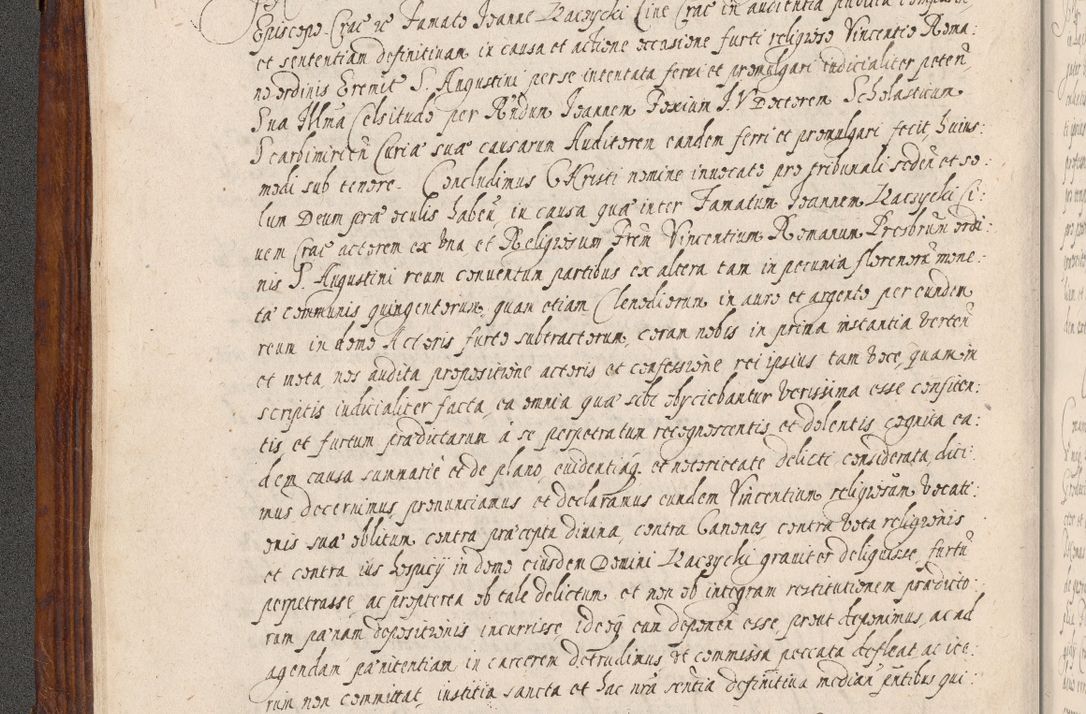 Episcopo Crac ac Famato Joanne Raczycki Cive Crac in audientia publica
et sententiam definitivam in causa et actione occasione furti religioso Vincentio Roma:
no ordinis Eremit S. Augustini per se intentata ferri et promulgari iudicialiter peteñ
Sua Illma Celsitudo per Rñdum Joannem Foxium I.V Doctorem Scholasticum
Scarbimirieñ Curiæ suæ causarum Auditorem eandem ferri et promulgari fecit, huius:
modi sub tenore. Concludimus Christi nomine invocato pro tribunali sedeñ et so:
lum Deum præ oculis habeñ, in causa quæ inter Famatum Joannem Raczycki Ci:
vem Crac actorem ex una et Religiosum Frem Vincentium Romanum Presbrum ordi:
nis S. Augustini reum conventum partibus ex altera tam in pecunia florenorũ mone:
tæ communis quingentorum, quam etiam Clenodiorum in auro et argento per eundem
reum in domo Actoris furto subtractorum, coram nobis in prima instantia verteñ
et mota, nos audita propositione actoris et confessione rei ipsius tam voce, quam in
scriptis iudicialiter facta, ea omnia quæ sibi obyciebantur verissima esse confiten:
tis, et furtum prædictarum à se perpetratum recognoscentis et dolentis cognita ea:
dem causa summariè et de plano, evidentiaq et notorietate delicti considerata, dici:
mus decernimus pronunciamus et declaramus eundem Vincentium religiosum vocati:
onis suæ oblitum contra præcepta divina, contra Canones contra vota religionis
et contra ius hospicij in domo eiusdem Domini Raczycki graviter deliquisse, furtũ
perpetrasse, ac propterea ob tale delictum et non ob integram restitutionem prædicto:
rum pœnam depositionis incurrisse, ideoq eum deponeñ esse, prout deponimus, ac ad
agendam pœnitentiam in carcerem detrudimus, ut commissa peccata defleat ac ite:
rum non committat, iustitia sancta et hac nrã sentia definitiva median pntibus qui: